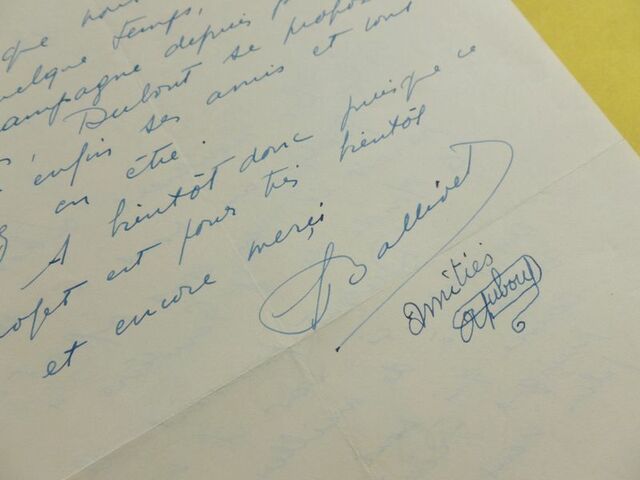 que nous
quelque temps,
campagne depuis
Dubout se propose
enfin ses amis et vous
en être.
A bientôt donc puisque ce
projet est pour très bientôt
et encore merçi
Ballivet
Amitiés
Dubout